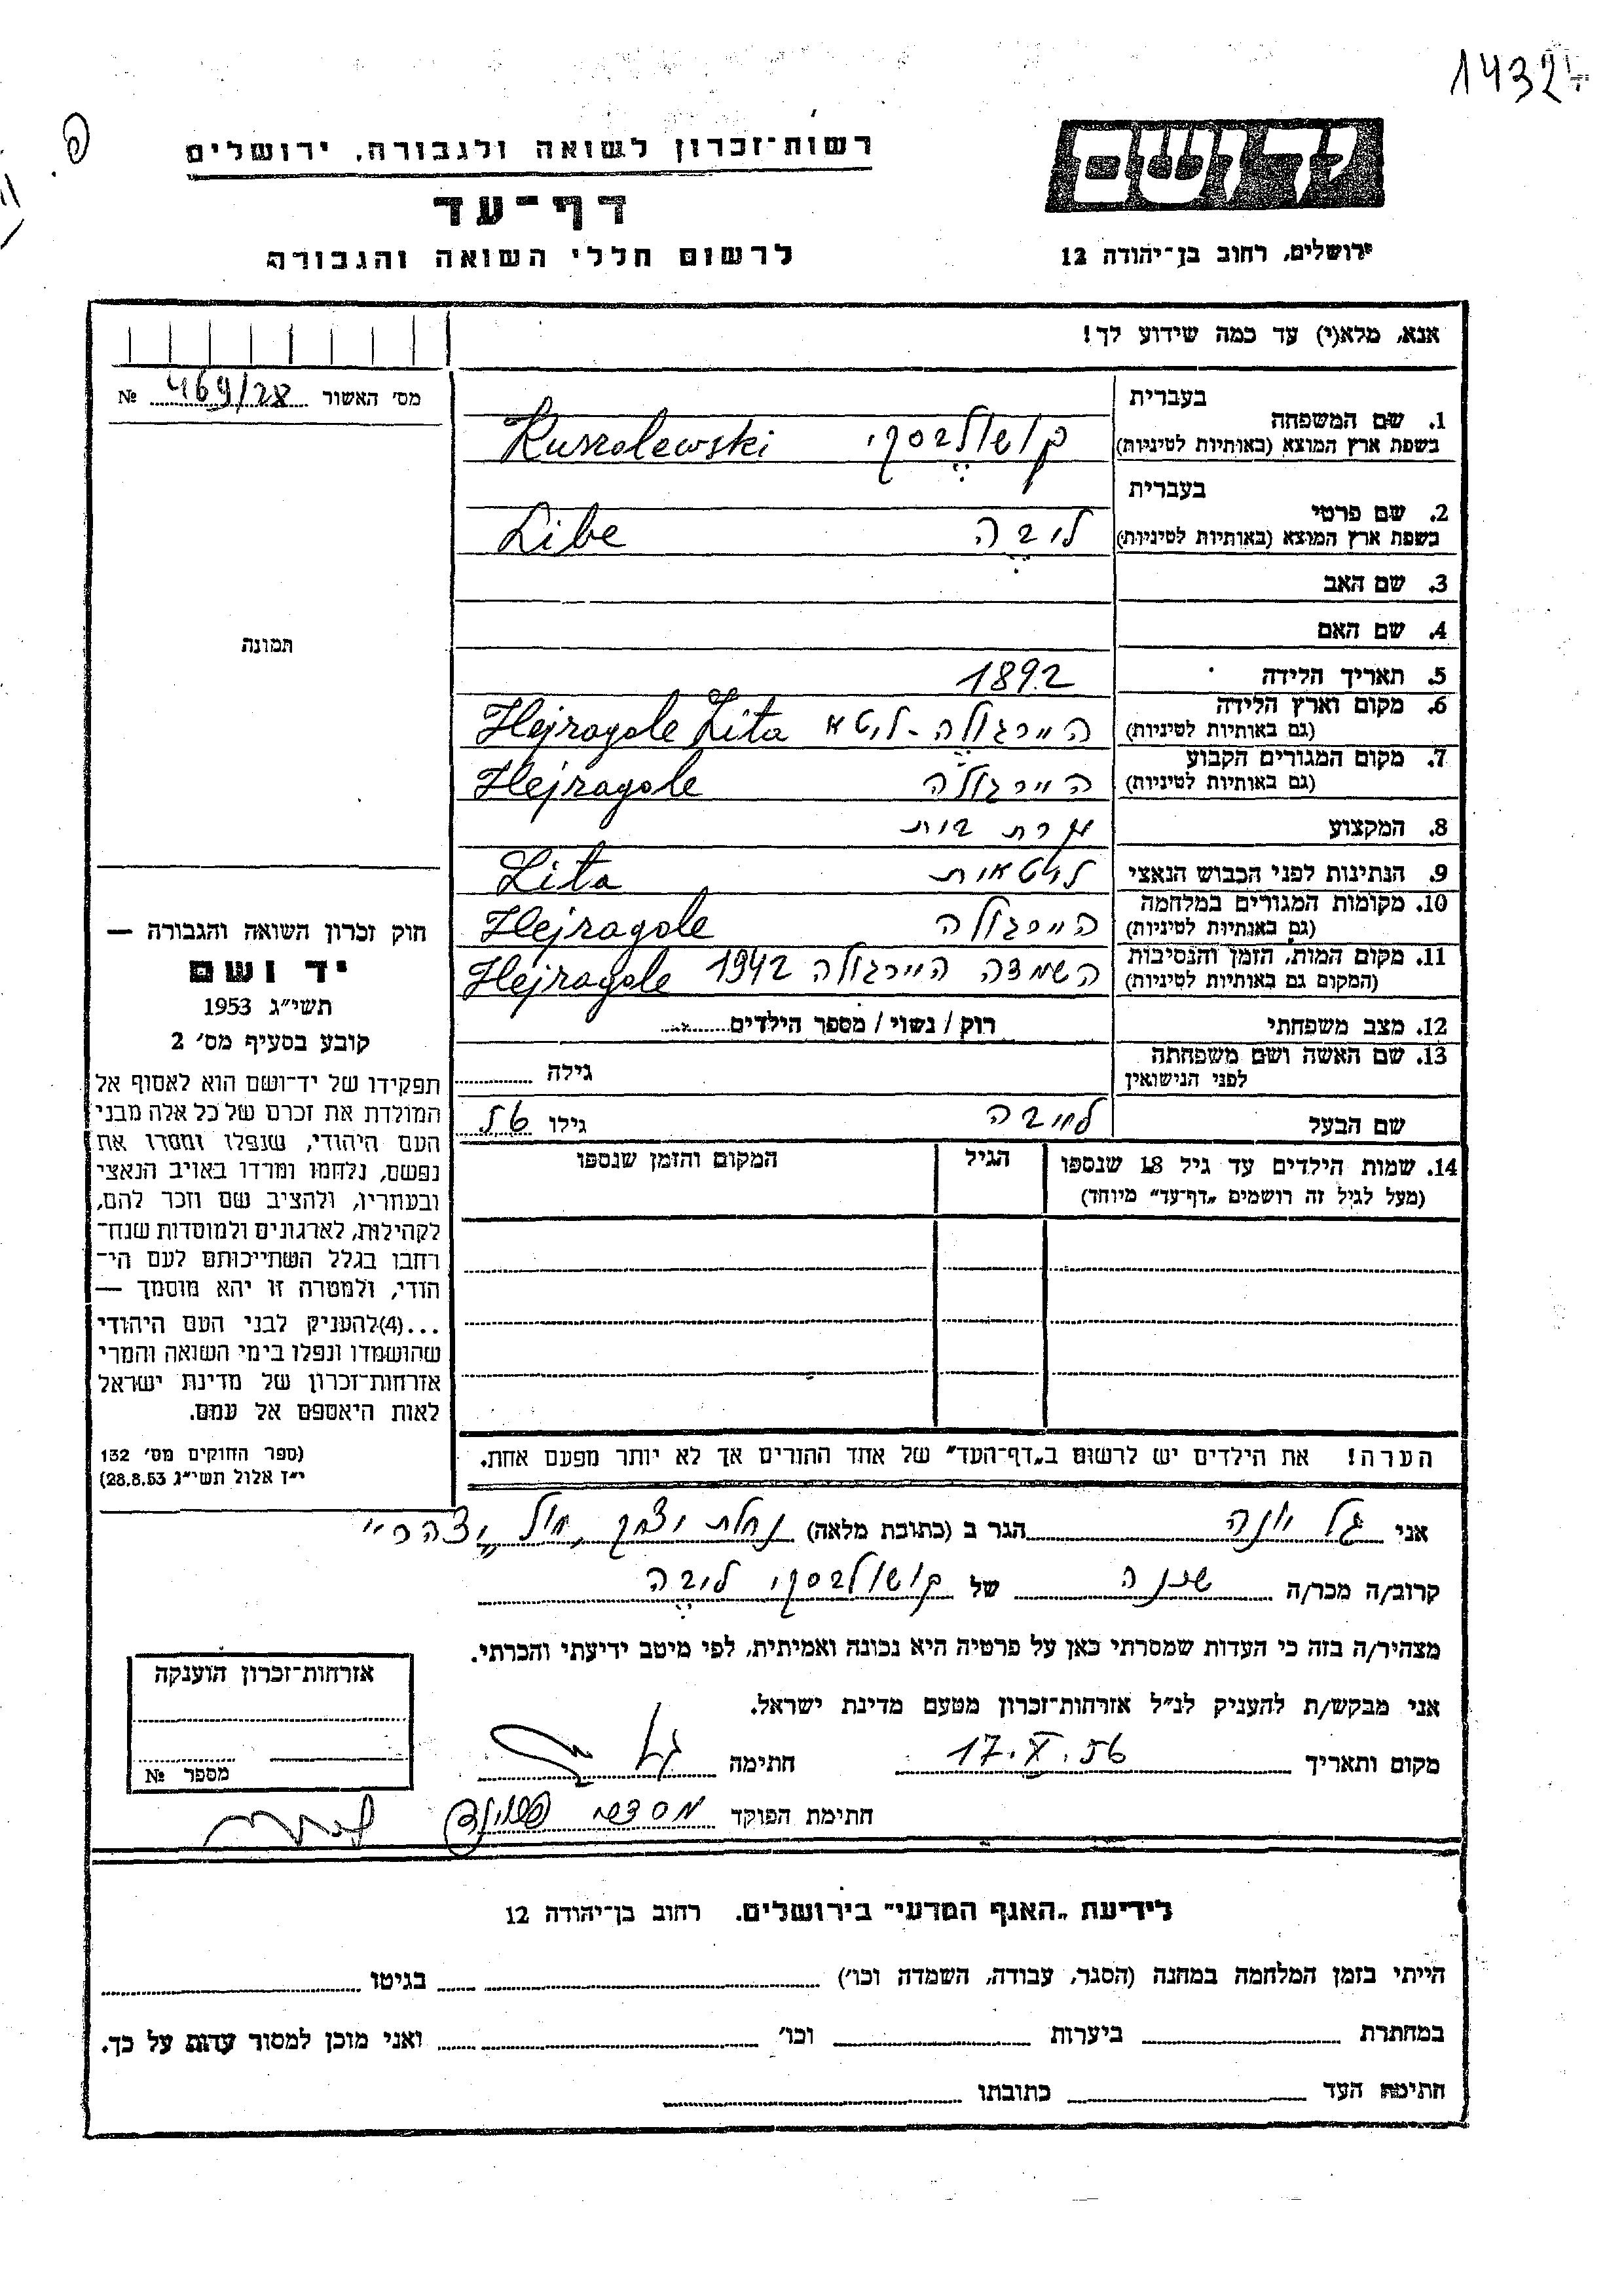 1432
רשות-זכרון לשואה ולגבורה, ירושלים
יד ושם
דף-עד
לרשום חללי השואה והגבורה
ירושלים, רחוב בן-יהודה 12
אנא, מלא(י) עד כמה שידוע לך!
מס' האשור 469/28 №
1. שם המשפחה
בעברית
בשפת ארץ המוצא (באותיות לטיניות)
קושולבסקי Kuszolewski
2. שם פרטי
בעברית
בשפת ארץ המוצא (באותיות לטיניות)
ליבה Libe
3. שם האב
4. שם האם
תמונה
5. תאריך הלידה 1892
6. מקום וארץ הלידה
(גם באותיות לטיניות)
היירגולה - ליטא Hejragole Lita
7. מקום המגורים הקבוע
(גם באותיות לטיניות)
היירגולה Hejragole
8. המקצוע עקרת בית
9. הנתינות לפני הכבוש הנאצי ליטאית Lita
10. מקומות המגורים במלחמה
(גם באותיות לטיניות)
היירגולה Hejragole
11. מקום המות, הזמן והנסיבות
(המקום גם באותיות לטיניות)
השמדה היירגולה 1942 Hejragole
12. מצב משפחתי רוק / נשוי / מספר הילדים
13. שם האשה ושם משפחתה
לפני הנישואין
גילה
שם הבעל גילו
14. שמות הילדים עד גיל 18 שנספו
(מעל לגיל זה רושמים "דף-עד" מיוחד)
הגיל
המקום והזמן שנספו
חוק זכרון השואה והגבורה —
יד ושם
תשי"ג 1953
קובע בסעיף מס' 2
תפקידו של יד-ושם הוא לאסוף אל
המולדת את זכרם של כל אלה מבני
העם היהודי, שנפלו ומסרו את
נפשם, נלחמו ומרדו באויב הנאצי
ובעוזריו, ולהציב שם וזכר להם,
לקהילות, לארגונים ולמוסדות שנח-
רחבו בגלל השתייכותם לעם הי-
הודי, ולמטרה זו יהא מוסמך —
...(4) להעניק לבני העם היהודי
שהושמדו ונפלו בימי השואה והמרי
אזרחות-זכרון של מדינת ישראל
לאות היאספם אל עמם.
(ספר החוקים מס' 132
י"ז אלול תשי"ג 28.8.53)
הערה! את הילדים יש לרשום ב"דף-העד" של אחד ההורים אך לא יותר מפעם אחת.
אני גל יונה הגר ב (כתובת מלאה) נחלת יצחק, יצהר
קרוב/ה מכר/ה שכנה של קושולבסקי ליבה
מצהיר/ה בזה כי העדות שמסרתי כאן על פרטיה היא נכונה ואמיתית, לפי מיטב ידיעתי והכרתי.
אני מבקש/ת להעניק לנ"ל אזרחות-זכרון מטעם מדינת ישראל.
מקום ותאריך 17.X.56 חתימה גל
חתימת הפוקד
אזרחות-זכרון הוענקה
מספר №
לידיעת "האגף המדעי" בירושלים. רחוב בן-יהודה 12
הייתי בזמן המלחמה במחנה (הסגר, עבודה, השמדה וכו') בגיטו
במחתרת ביערות וכו' ואני מוכן למסור עדות על כך.
חתימת העד כתובתו